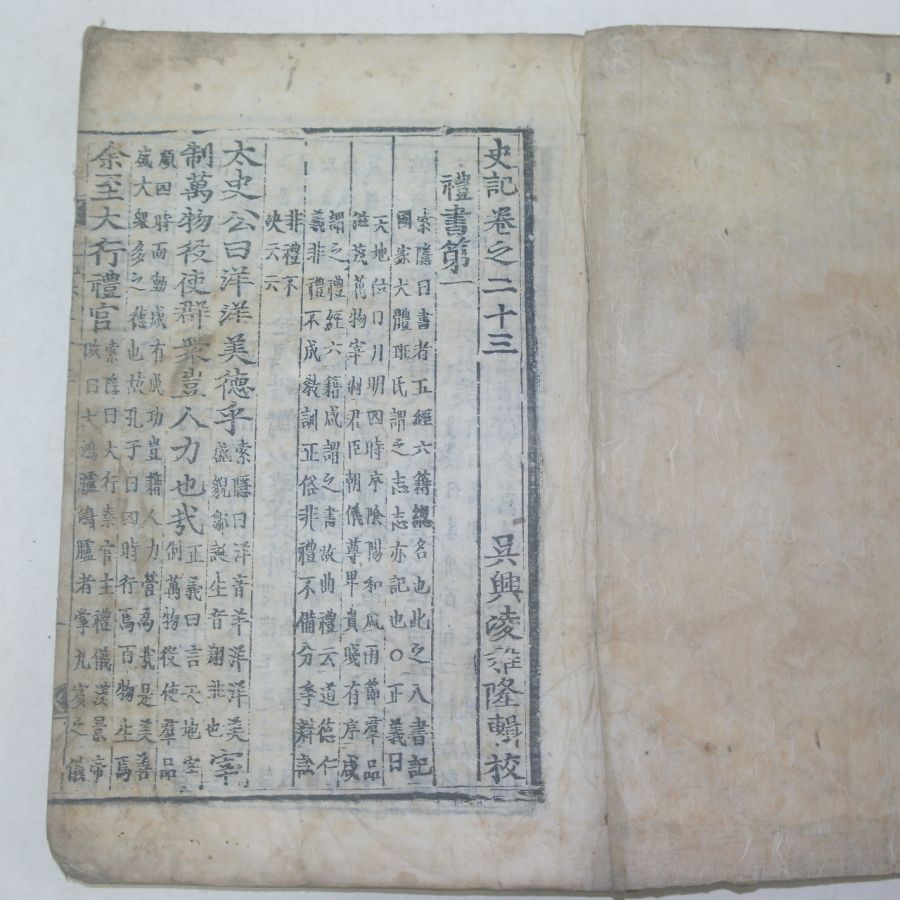 史記卷之二十三 吳興凌稚隆輯校
禮書第一
索隱曰書者五經六籍總名也此之八書記
國家大體班氏謂之志志亦記也○正義曰
天地位日月明四時序陰陽和風雨節羣品
滋茂萬物宰制君臣朝儀尊卑貴賤有序咸
謂之禮經六籍咸謂之書故曲禮云道德仁
義非禮不成教訓正俗非禮不備分爭辯訟
非禮不
決云云
太史公曰洋洋美德乎索隱曰洋音羊洋洋美盛貌鄒誕生音翔非也宰
制萬物役使群衆豈人力也哉正義曰言天地宰制萬物役使羣品
順四時而動咸有成功豈藉人力營爲哉是美善
盛大衆多之德也故孔子曰四時行焉百物生焉
余至大行禮官索隱曰大行秦官主禮儀漢景帝改曰大鴻臚鴻臚者掌九賓之儀